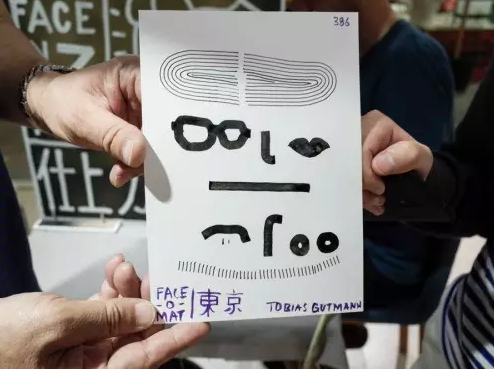 386
FACE
-O-
MAT
東京
TOBIAS GUTMANN
FACE
仕上